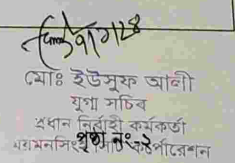 মোঃ ইউসুফ আলী
যুগ্ম সচিব
প্রধান নির্বাহী কর্মকর্তা
ময়মনসিংহ সিটি কর্পোরেশন
পৃষ্ঠা নং-২